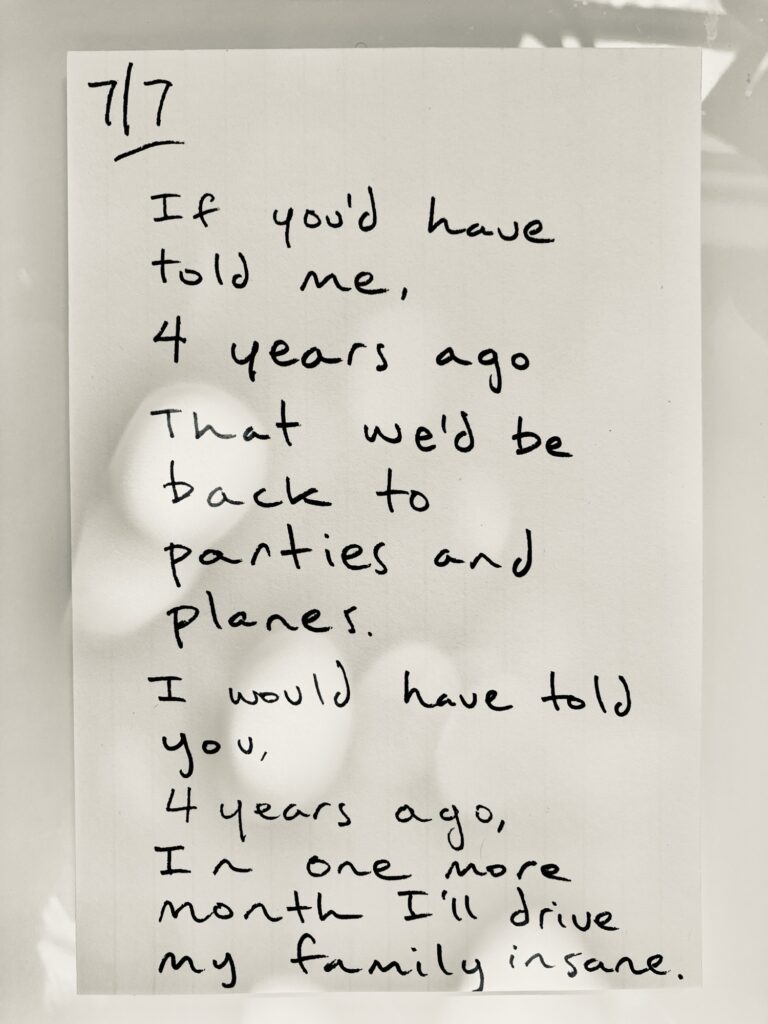 7/7
If you'd have
told me,
4 years ago
That we'd be
back to
parties and
planes.
I would have told
you,
4 years ago,
In one more
month I'll drive
my family insane.